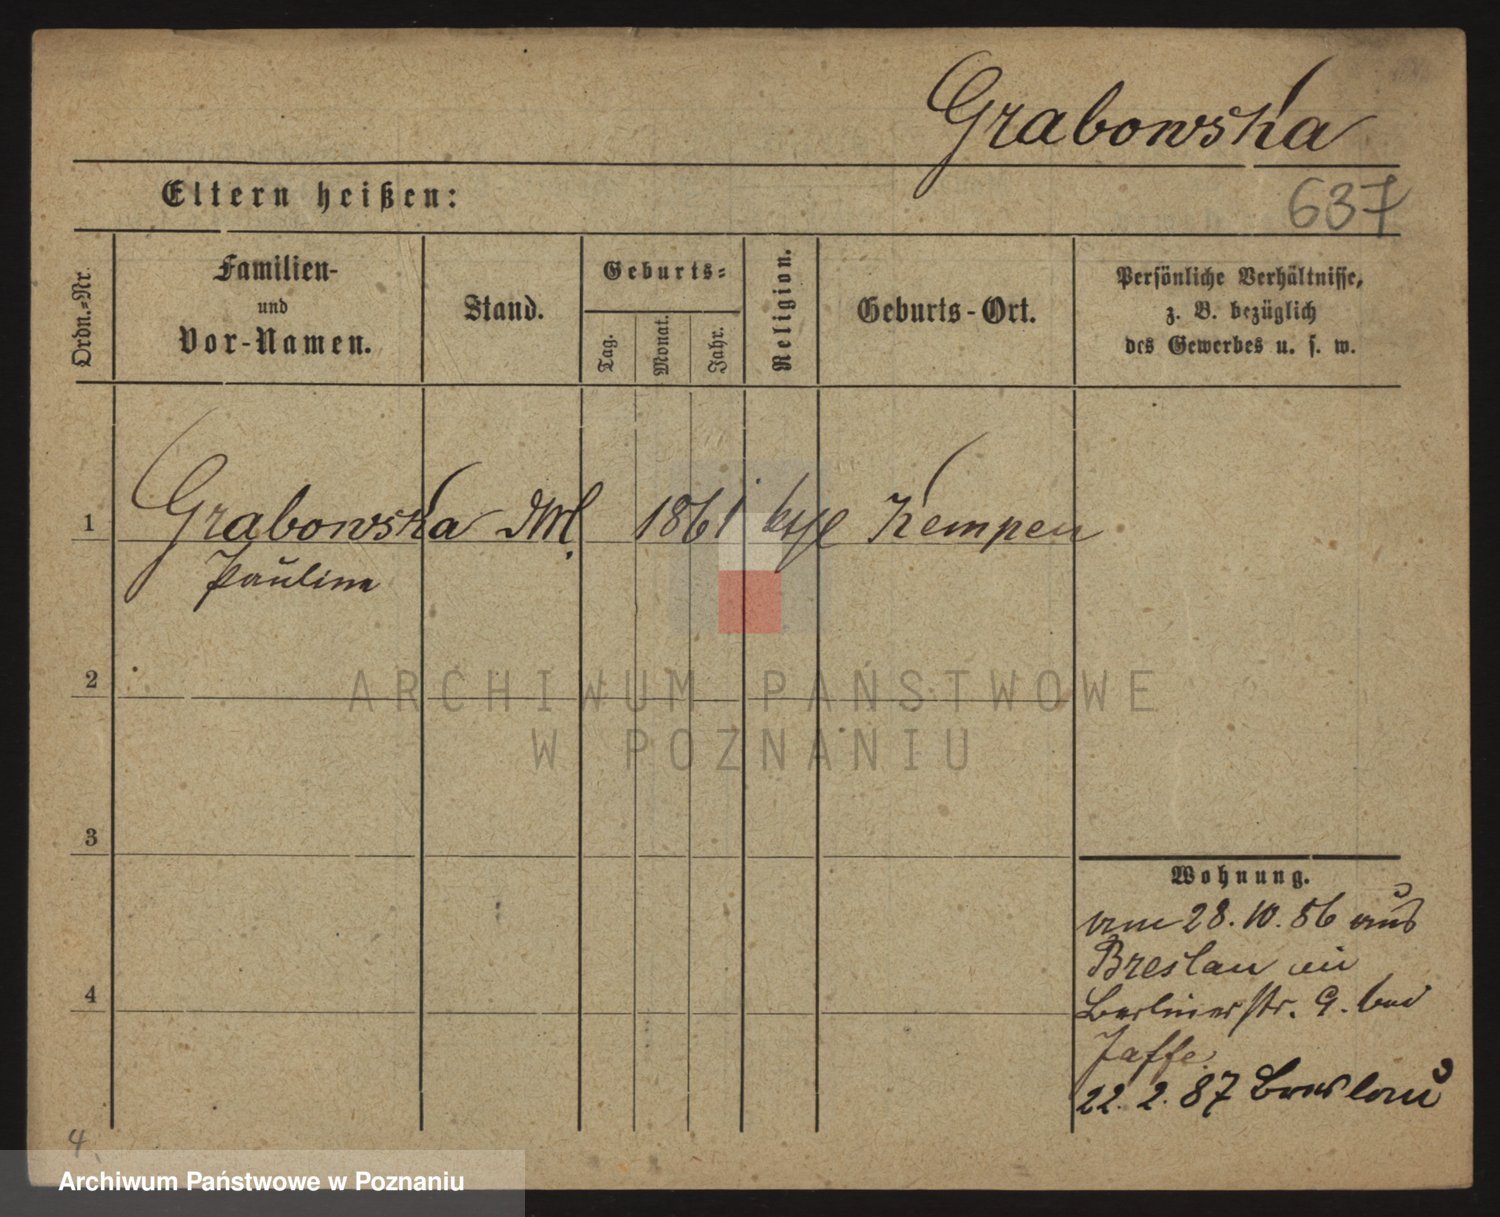 Grabowska
637
Eltern heißen:
Ordn.-Nr.
Familien-
und
Vor-Namen.
Stand.
Geburts-
Tag.
Monat.
Jahr.
Religion.
Geburts-Ort.
Persönliche Verhältnisse,
z. B. bezüglich
des Gewerbes u. s. w.
1 Grabowska 1861 Kempen
Pauline
2
ARCHIWUM PAŃSTWOWE
W POZNANIU
3
Wohnung.
am 28.10.86 aus
Breslau in
4
Berlinerstr. 9. bei
Jaffe.
22. 2. 87 Breslau
4
Archiwum Państwowe w Poznaniu